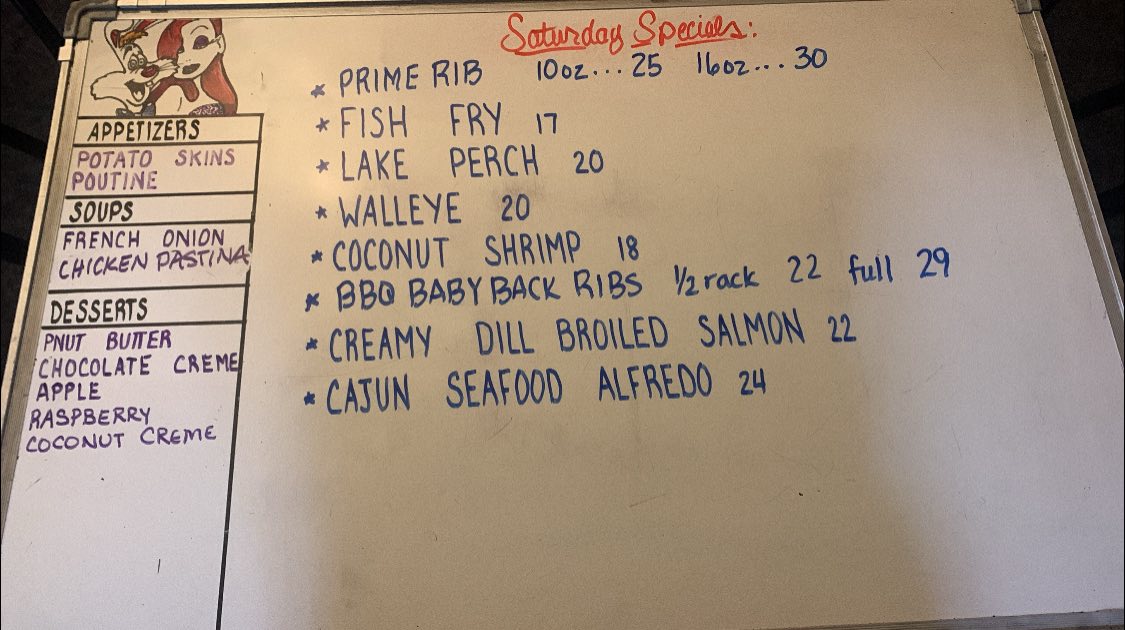 Saturday Specials:
* PRIME RIB 10oz... 25 16oz... 30
* FISH FRY 17
* LAKE PERCH 20
* WALLEYE 20
* COCONUT SHRIMP 18
* BBQ BABY BACK RIBS 1/2 rack 22 full 29
* CREAMY DILL BROILED SALMON 22
* CAJUN SEAFOOD ALFREDO 24
APPETIZERS
POTATO SKINS
POUTINE
SOUPS
FRENCH ONION
CHICKEN PASTINA
DESSERTS
PNUT BUTTER
CHOCOLATE CREME
APPLE
RASPBERRY
COCONUT CREME